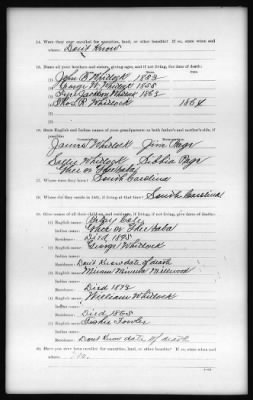 14. Were they ever enrolled for annuities, land, or other benefits? If so, state when and
where: Don't Know
15. Name all your brothers and sisters, giving ages, and if not living, the date of death:
(1) John B Whitlock 1853
(2) George W. Whitlock 1855
(3) Jackson Whitlock 1863
(4) Thos. R. Whitlock 1864
16. State English and Indian names of your grandparents on both father's and mother's side, if
possible:
James Whitlock Jim Page
Sally Whitlock Sibbia Page
17. Where were they born? South Carolina
18. Where did they reside in 1851, if living at that time? South Carolina
19. Give names of all their children, and residence, if living; if not living, give dates of deaths:
(1) English name:
Indian name:
Residence: Died 1895
(2) English name: George Whitlock
Indian name:
Residence: Don't Know date of death
(3) English name: Miriam Minerva
Indian name:
Residence: Died 1872
(4) English name: William Whitlock
Indian name:
Residence: Died 1865
(5) English name: Fowler
Indian name:
Residence: Dont Know date of death
20. Have you ever been enrolled for annuities, land, or other benefits? If so, state when and
where: No.